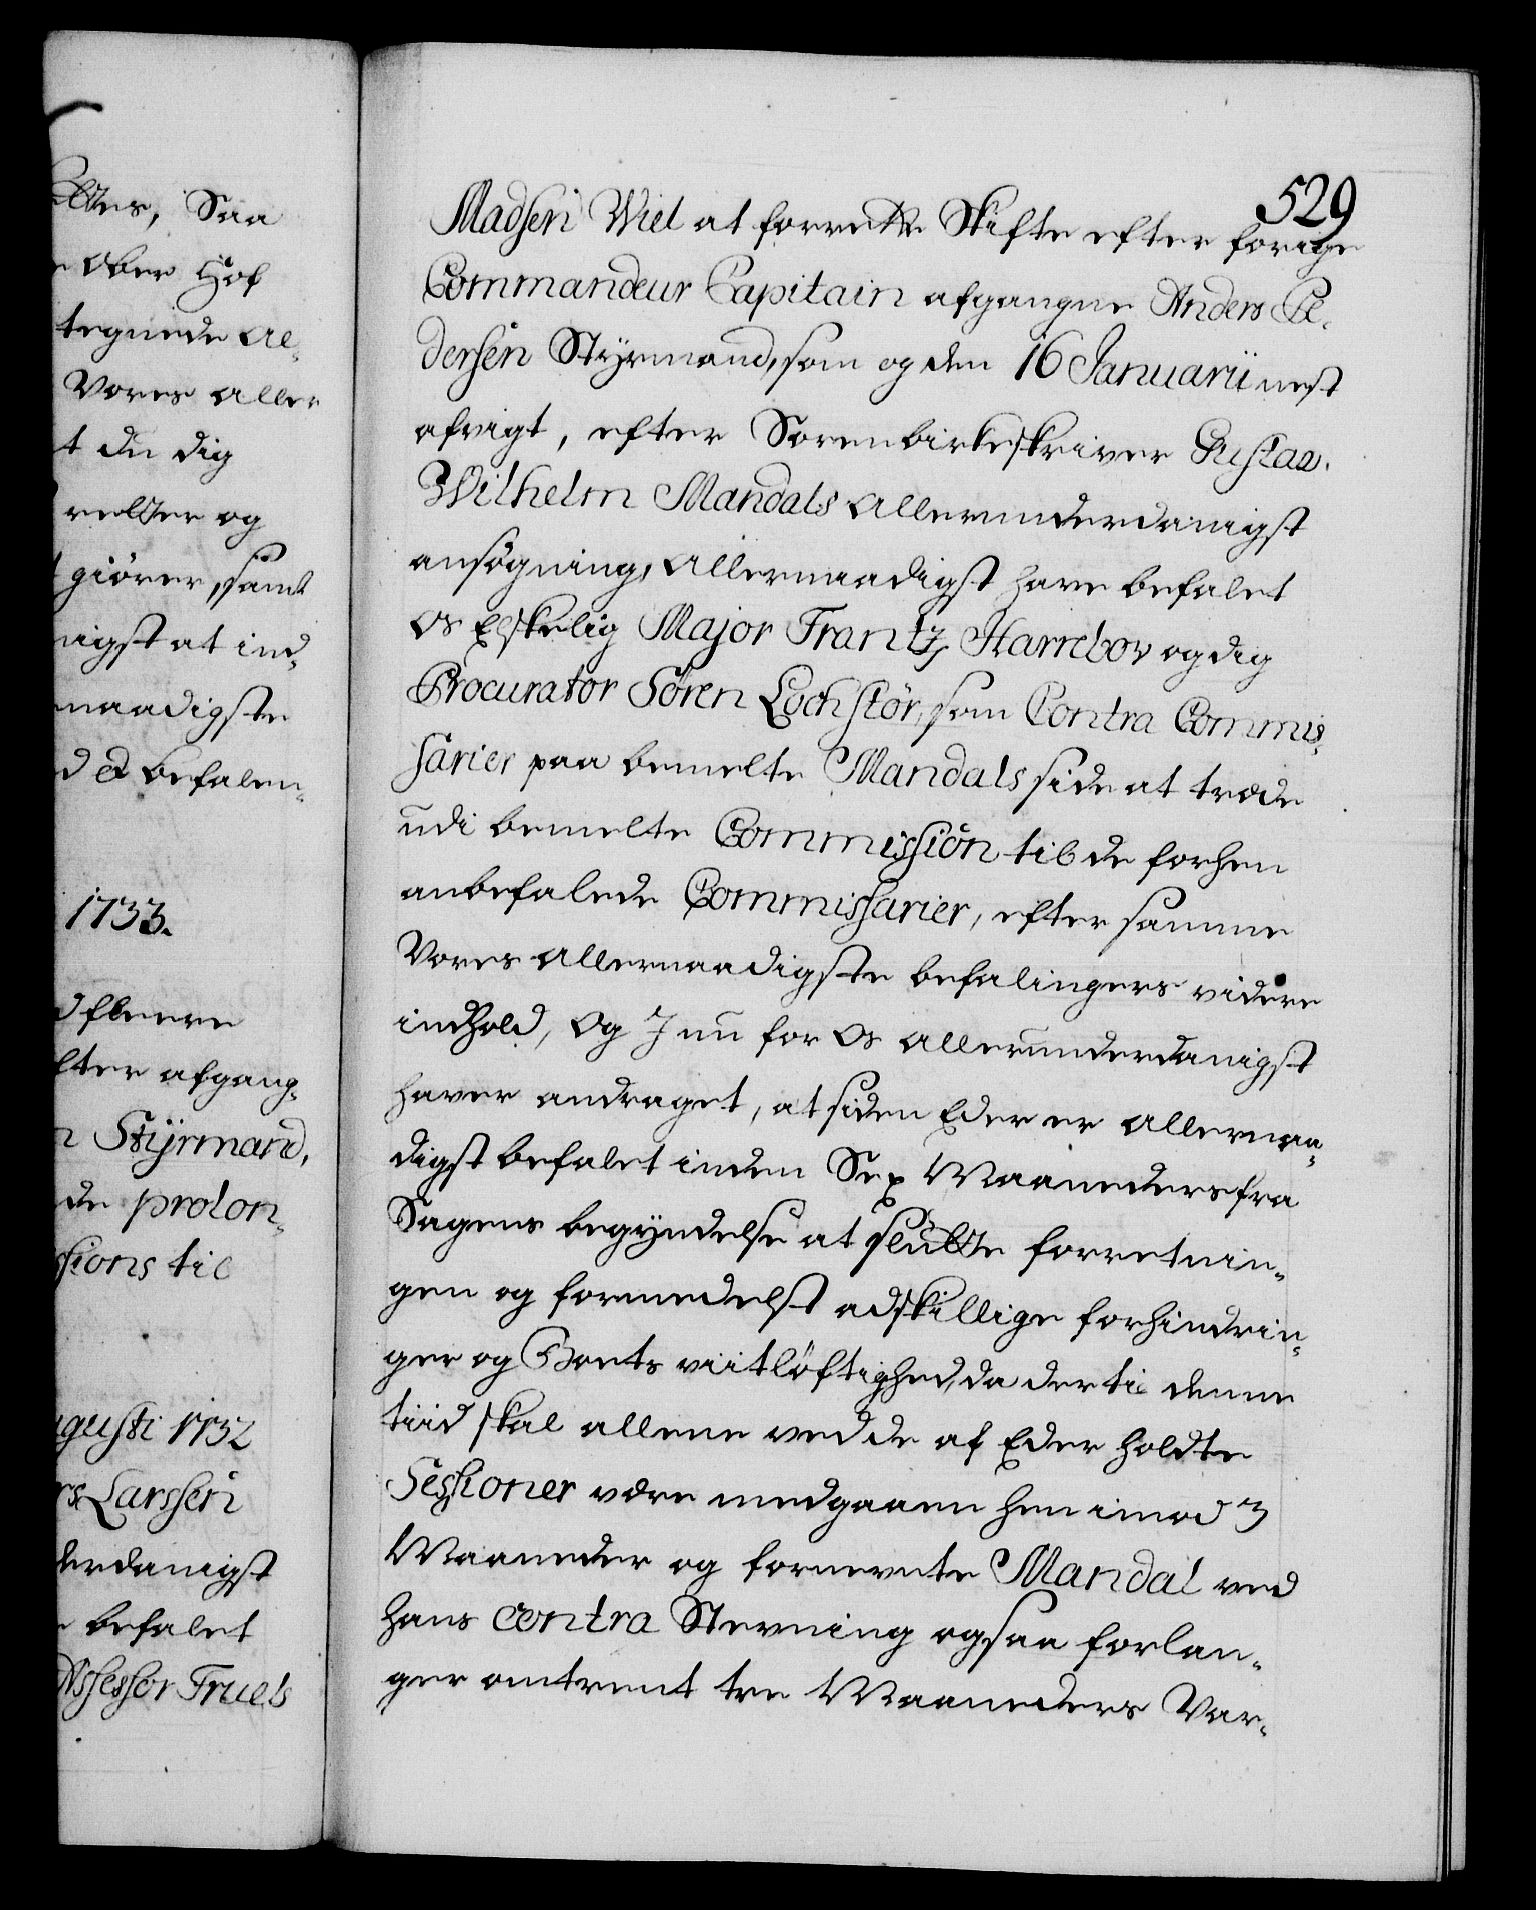 ttes, Saa
Ober Hof
tegnede Al-
Vores aller
t du dig
retter og
giörer, samt
nigst at ind-
naadigste
d et befalen-
1733.
d fleere
fter afgang-
n Styrmand,
de prolon-
sions til
gusti 1732
rs Larssen
derdanigst
befalet
Assessor Truels
529
Madsen Wiel at forrette Skifte efter forige
Commandeur Capitain afgangne Anders Pe-
dersen Styrmand, som og den 16 Januarii nest
afvigt, efter Sorenbirkeskriver Gustav
Wilhelm Mandals allerunderdanigst
ansögning, allernaadigst have befalet
Os Elskelig Major Frantz Harrebov og dig
Procurator Sören Lochstör, som Contra Commis-
sarier paa bemelte Mandals side at træde
udi bemelte Commission til de forhen
anbefalede Commissarier, efter samme
Vores allernaadigste befalingers videre
indhold, Og J nu for Os allerunderdanigst
haver andraget, at siden Eder er allernaa-
digst befalet inden Sex Maaneders fra
Sagens begyndelse at slutte forretnin-
gen og formedelst adskillige forhindrin-
ger og Boets viitlöftighed, da der til denne
tiid skal allene ved de af Eder holdte
Sessioner være medgaaen hen imod 3
Maaneder og fornevnte Mandal ved
hans contra Stevning ogsaa forlan-
ger omtrent tre Maaneders Var-